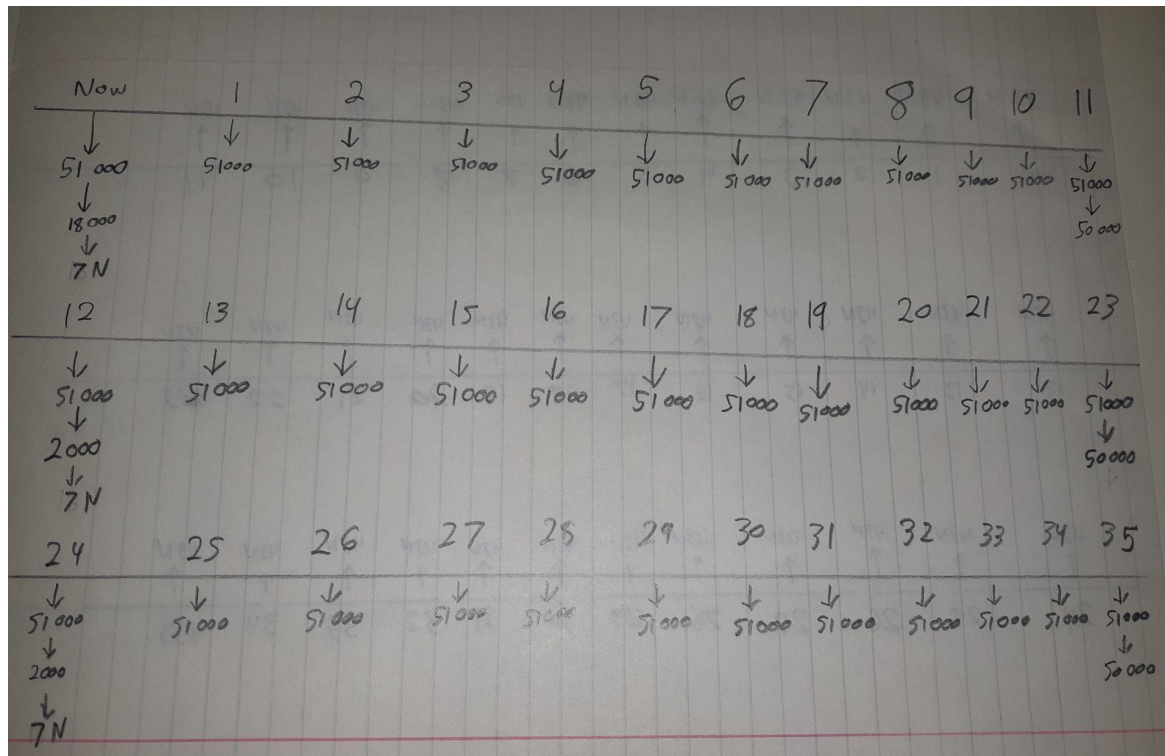 Now 1 2 3 4 5 6 7 8 9 10 11
51 000 51000 51000 51000 51000 51000 51000 51000 51000 51000 51000 51000
18 000 50 000
7 N
12 13 14 15 16 17 18 19 20 21 22 23
51000 51000 51000 51000 51000 51000 51000 51000 51000 51000 51000 51000
2000 50000
7 N
24 25 26 27 28 29 30 31 32 33 34 35
51000 51000 51000 51000 51000 51000 51000 51000 51000 51000 51000 51000
2000 50000
7N